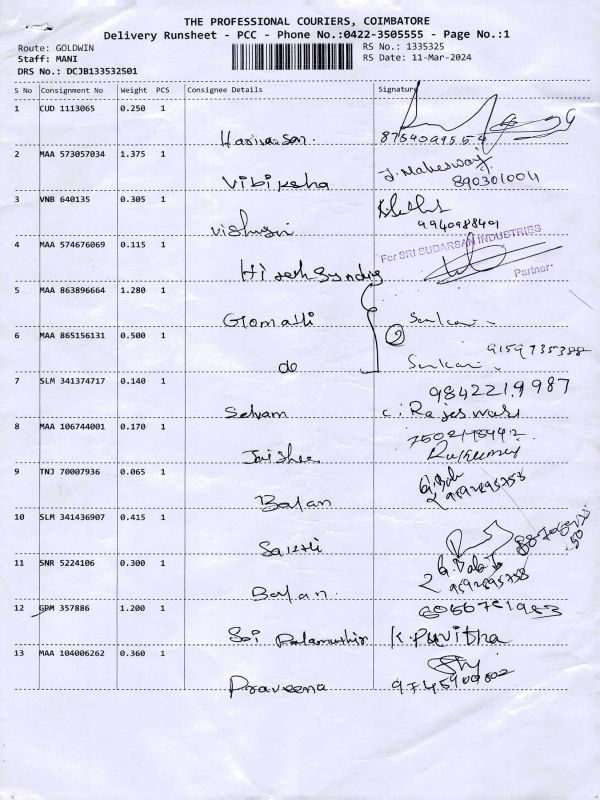 THE PROFESSIONAL COURIERS, COIMBATORE
Delivery Runsheet - PCC - Phone No.:0422-3505555 - Page No.:1
Route: GOLDWIN
Staff: MANI
DRS No.: DCJB133532501
RS No.: 1335325
RS Date: 11-Mar-2024
S No Consignment No Weight PCS Consignee Details Signature
1 CUD 1113065 0.250 1
2 MAA 573057034 1.375 1
Vibiksha J. Maheswari
8903010011
3 VNB 640135 0.305 1
9940988401
4 MAA 574676069 0.115 1
For SRI SUDARSAN INDUSTRIES
Partner
5 MAA 863896664 1.280 1
Gomathi
6 MAA 865156131 0.500 1
2
9159735388
do
7 SLM 341374717 0.140 1
9842219987
Selvam C. Rajeswari
8 MAA 106744001 0.170 1
Jaishee
9 TNJ 70007936 0.065 1
Balan
10 SLM 341436907 0.415 1
Sakthi
11 SNR 5224106 0.300 1
Balan.
12 GPM 357886 1.200 1
Sri K. Pavithra
13 MAA 104006262 0.360 1
Praveena